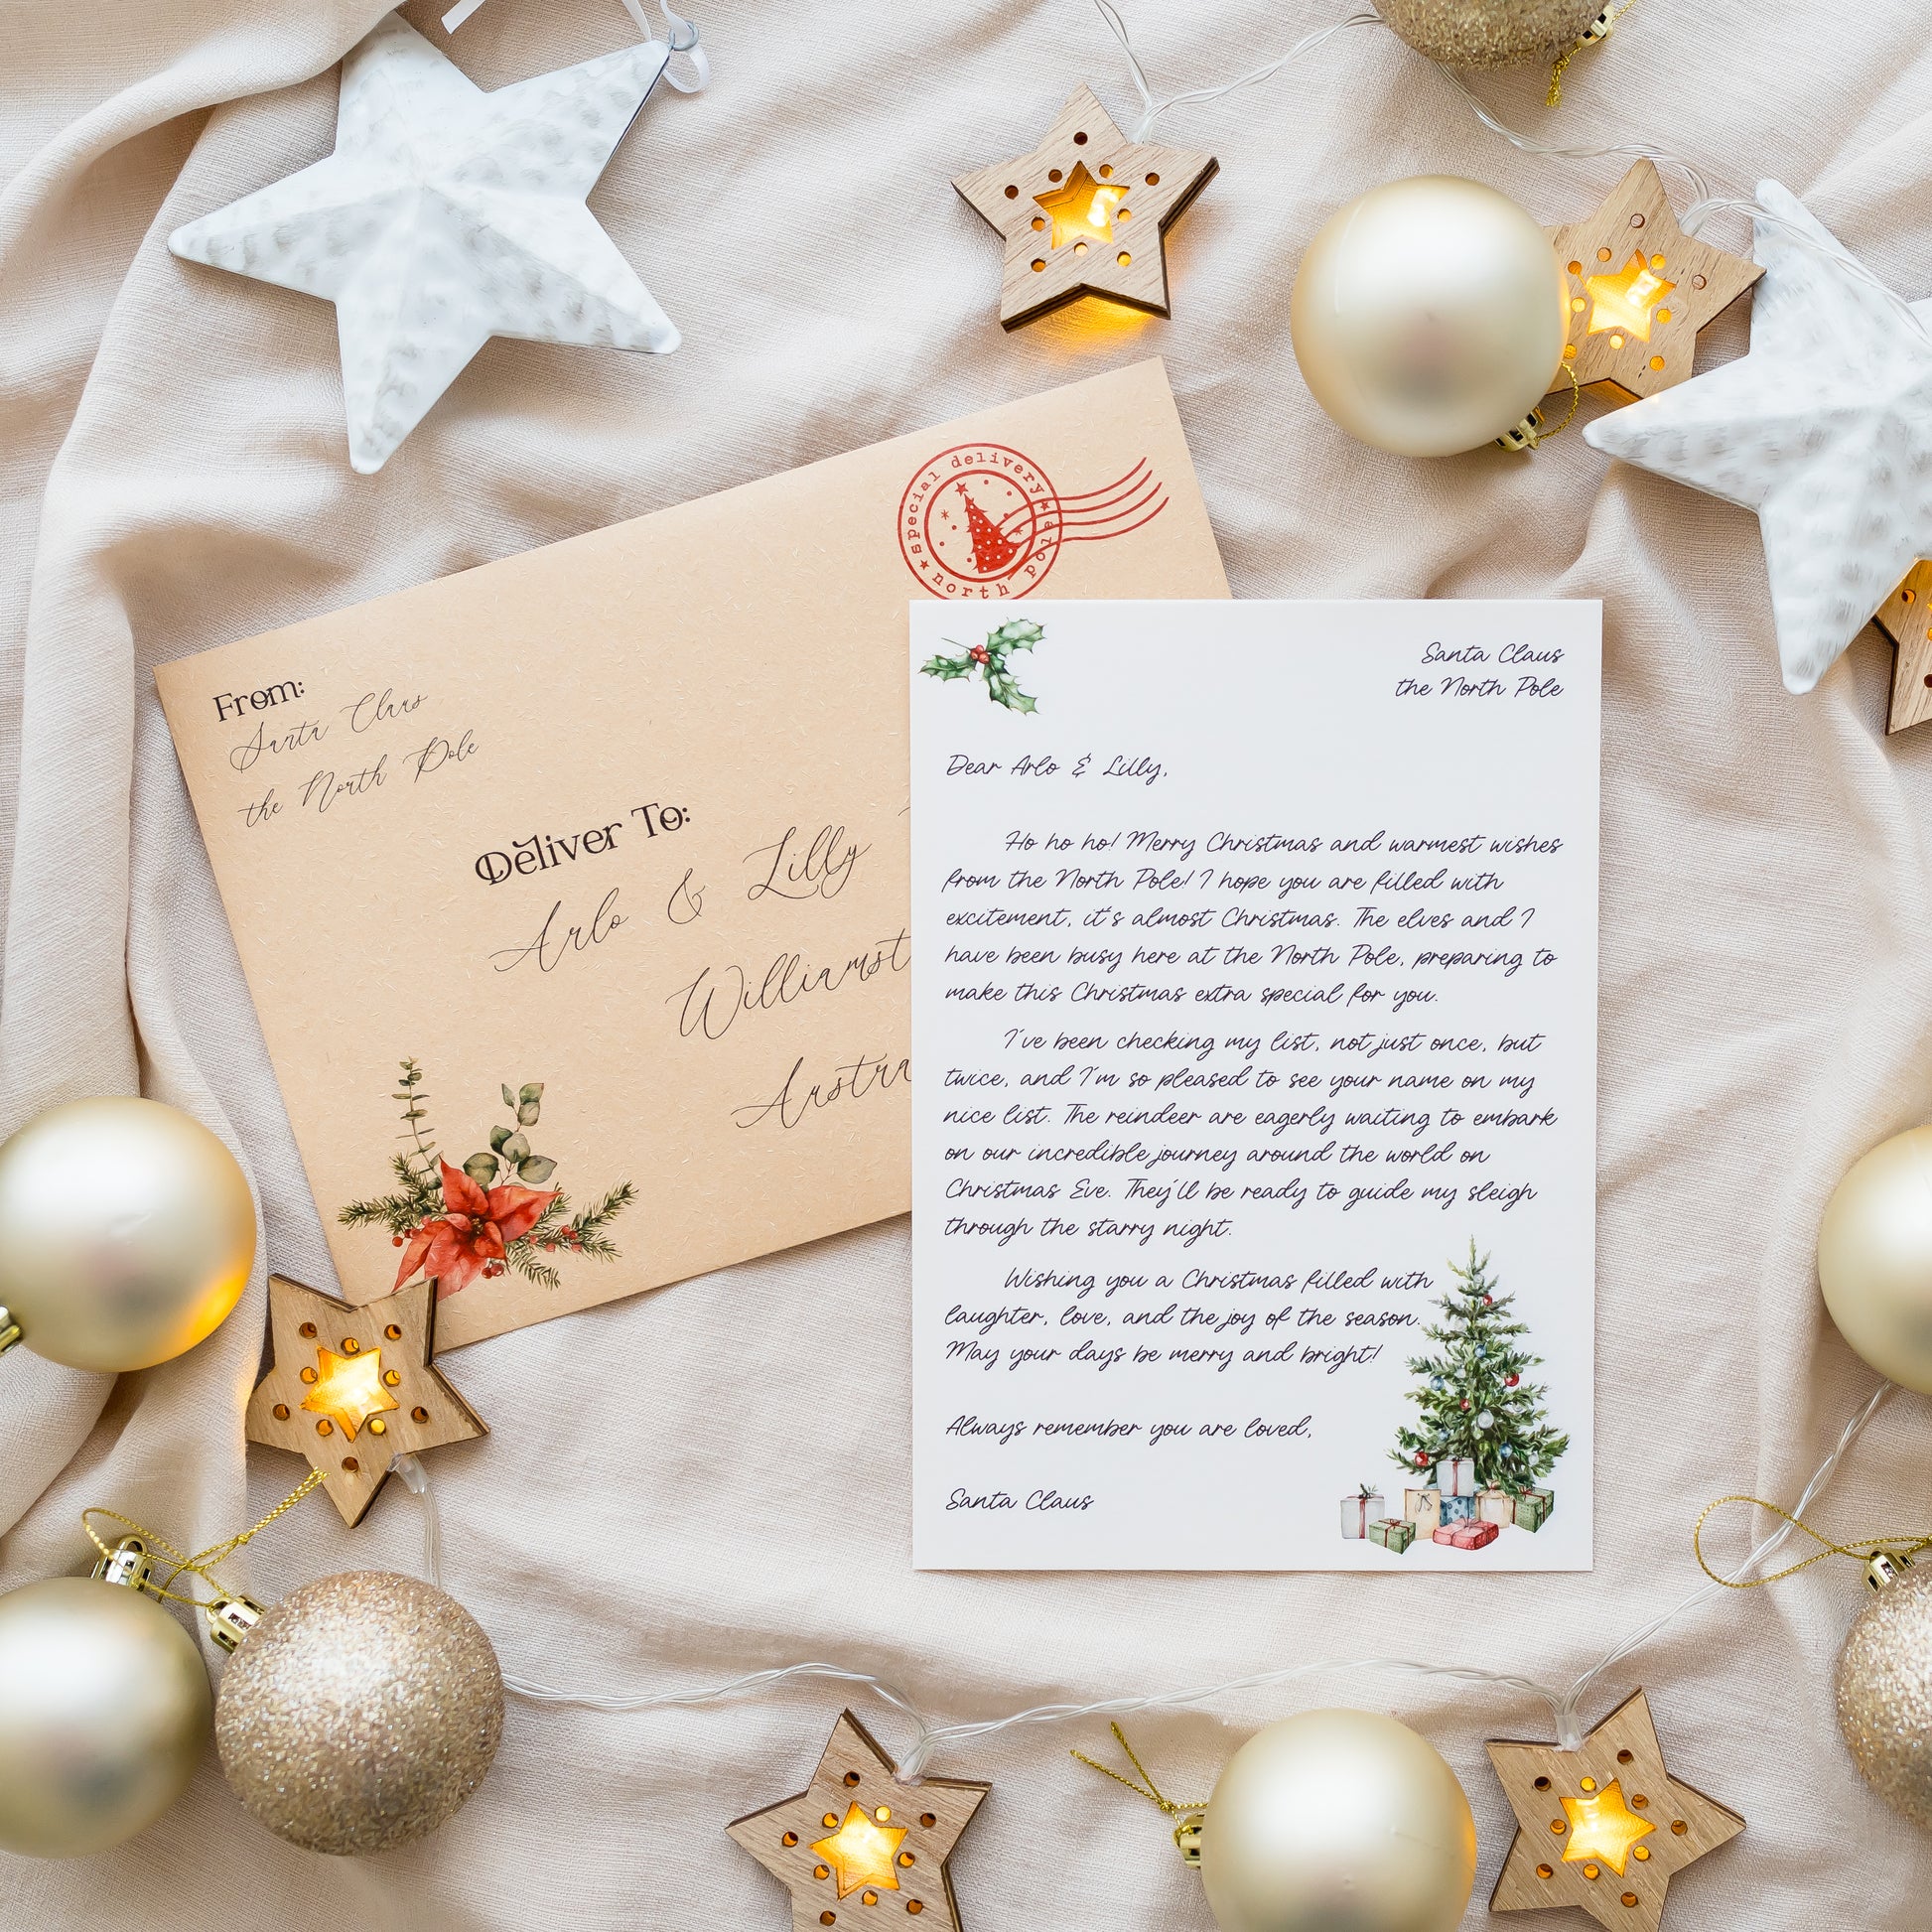 special delivery
north pole
From:
Santa Claus
the North Pole
Deliver To:
Arlo & Lilly
Santa Claus
the North Pole
Dear Arlo & Lilly,
Ho ho ho! Merry Christmas and warmest wishes
from the North Pole! I hope you are filled with
excitement, it's almost Christmas. The elves and I
have been busy here at the North Pole, preparing to
make this Christmas extra special for you.
I've been checking my list, not just once, but
twice, and I'm so pleased to see your name on my
nice list. The reindeer are eagerly waiting to embark
on our incredible journey around the world on
Christmas Eve. They'll be ready to guide my sleigh
through the starry night.
Wishing you a Christmas filled with
laughter, love, and the joy of the season.
May your days be merry and bright!
Always remember you are loved,
Santa Claus